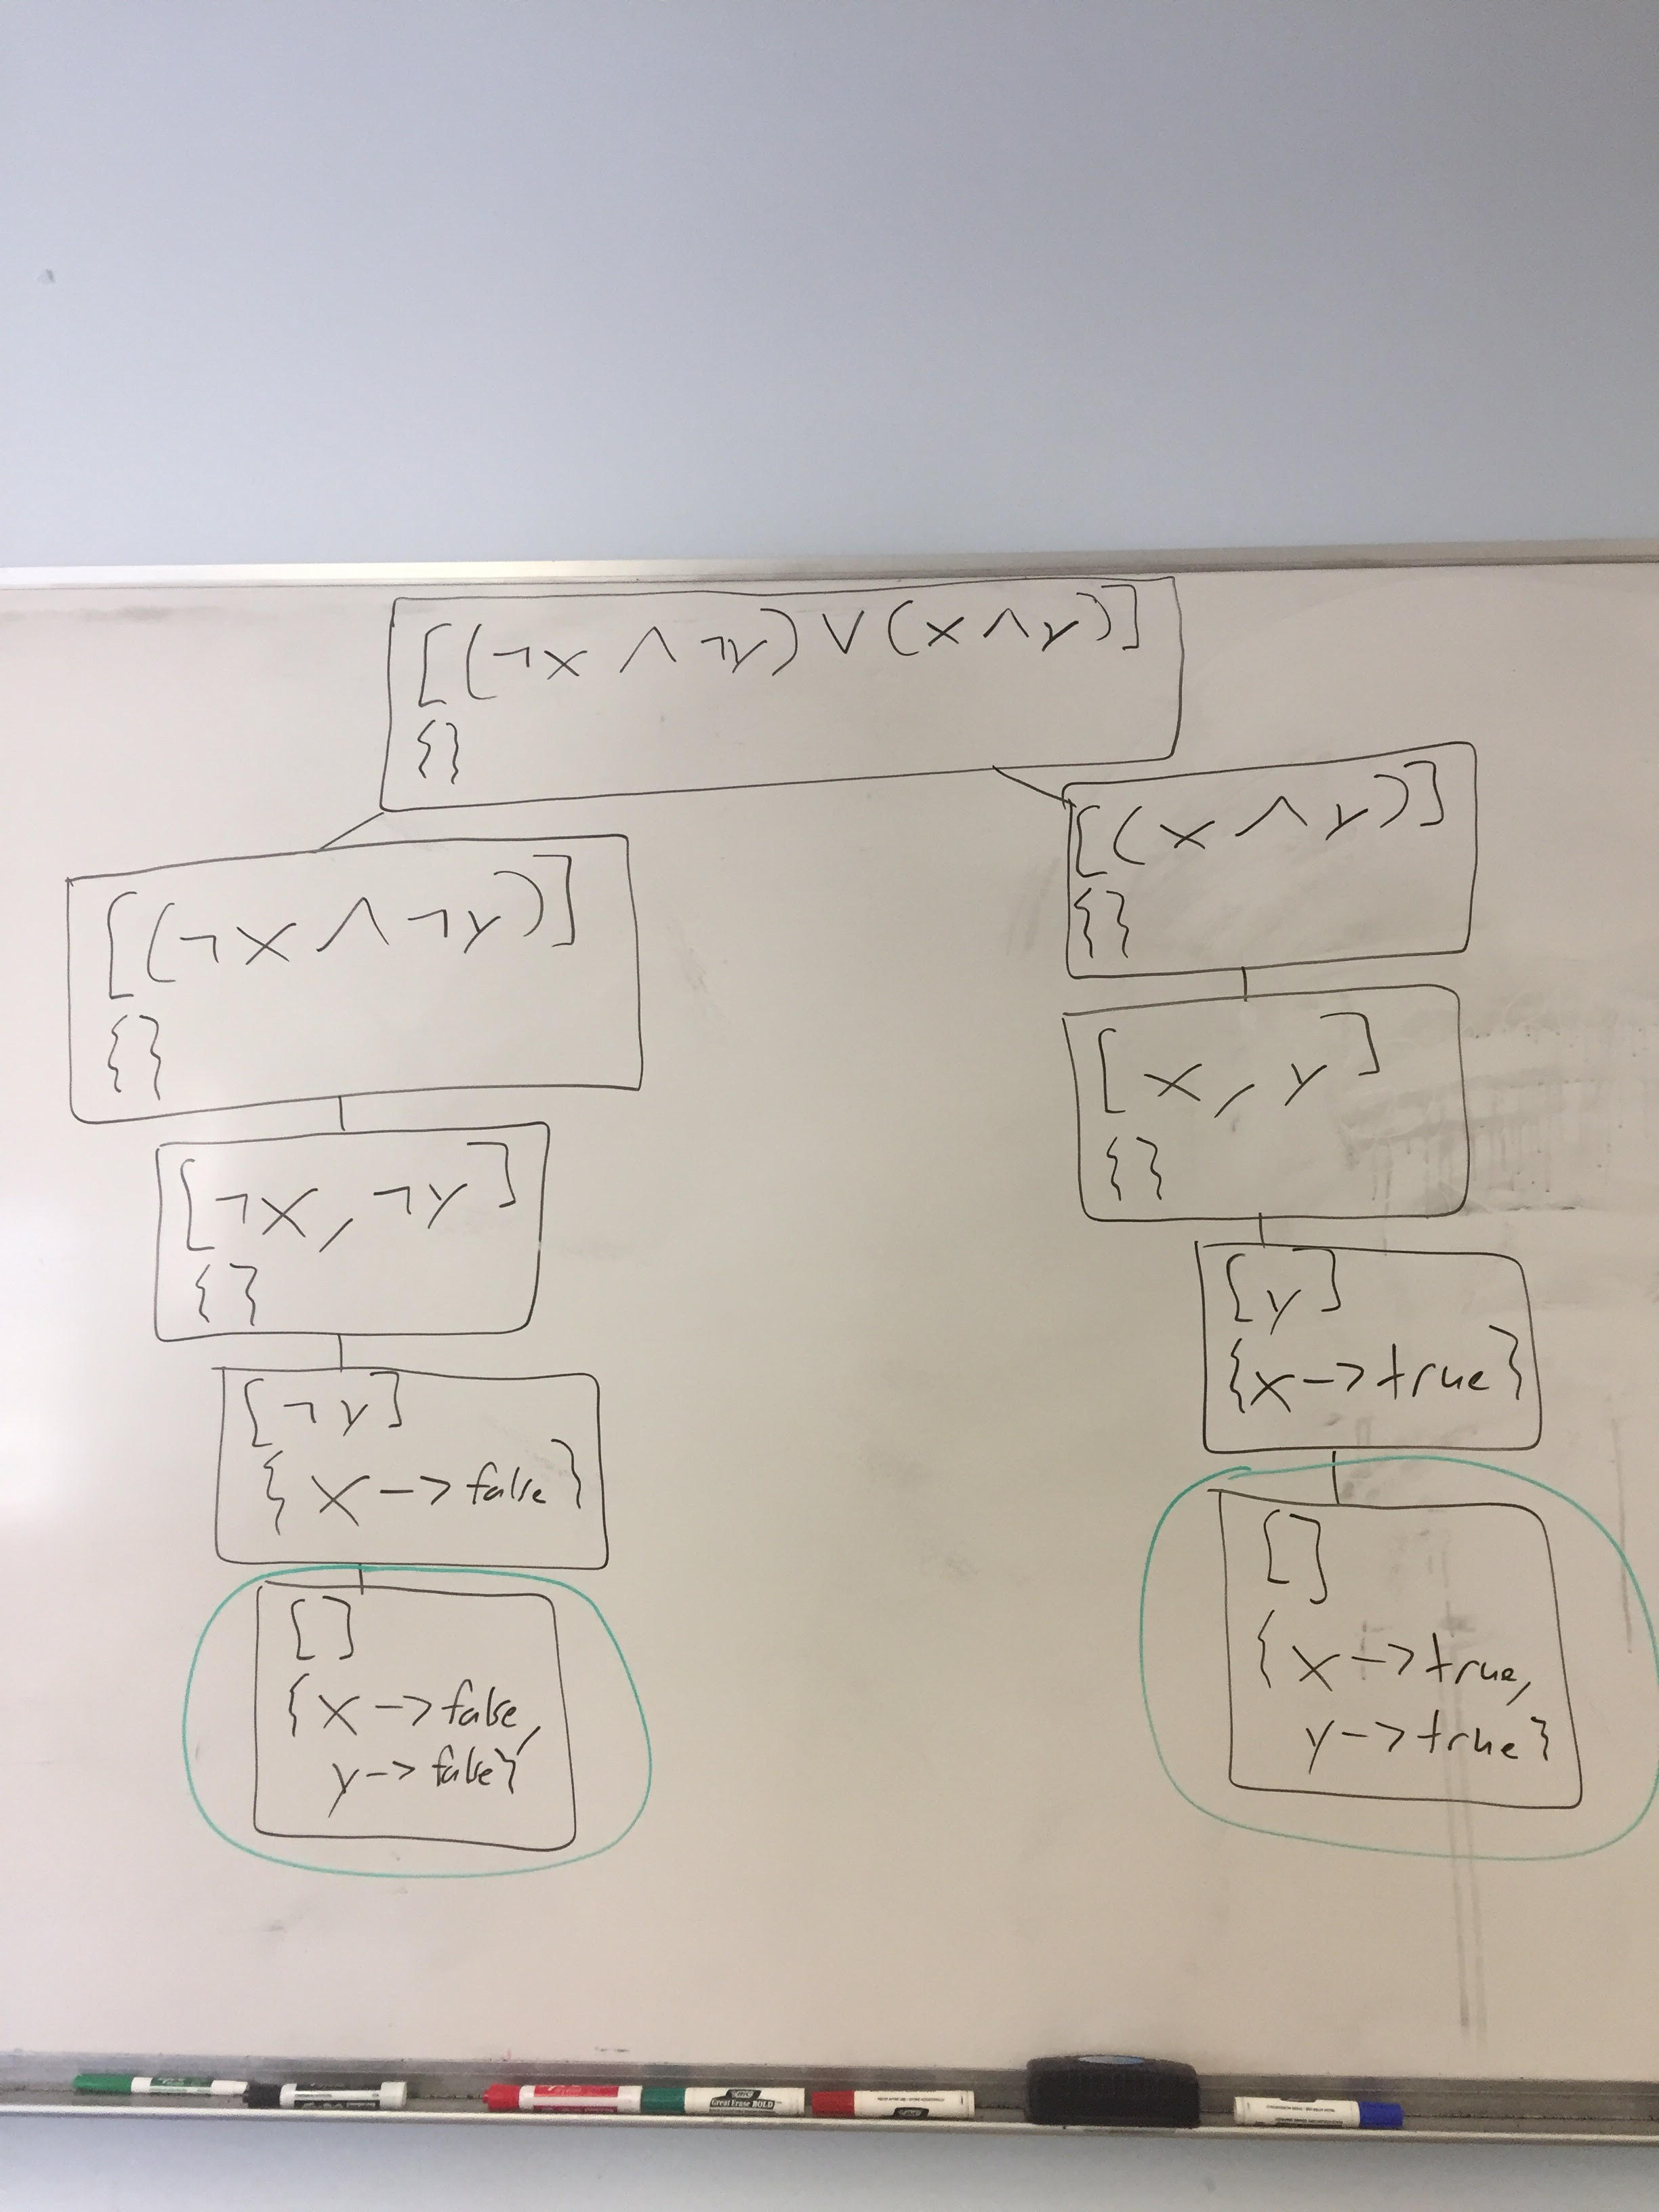 [(¬x ∧ ¬y) ∨ (x ∧ y)]
{}
[(¬x ∧ ¬y)]
{}
[¬x, ¬y]
{}
[¬y]
{x -> false}
[]
{x -> false,
y -> false}
[(x ∧ y)]
{}
[x, y]
{}
[y]
{x -> true}
[]
{x -> true,
y -> true}
Great Erase BOLD